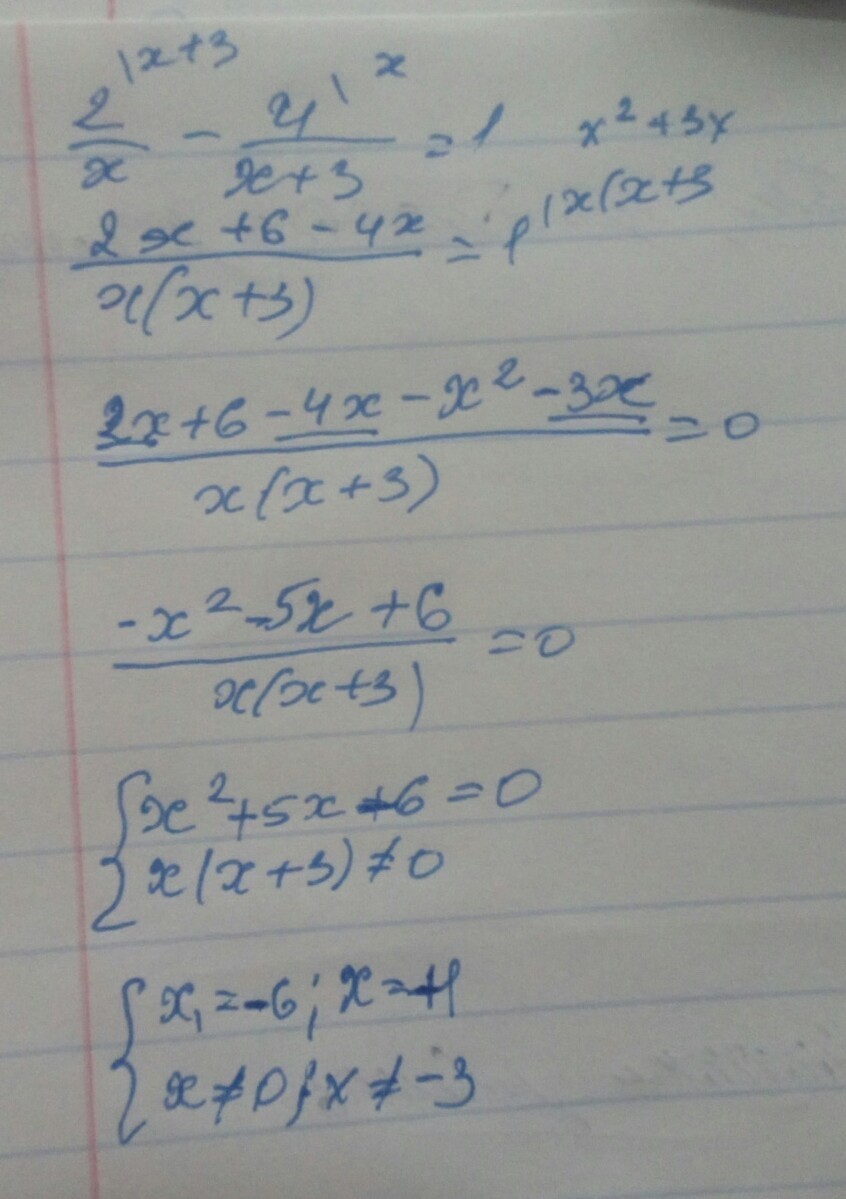 2\x+3/x - 4\x/x+3 = 1 x² + 3x
2x + 6 - 4x/x(x+3) = 1\x(x+3
2x + 6 - 4x - x² - 3x/x(x+3) = 0
-x² - 5x + 6/x(x+3) = 0
{ x² + 5x - 6 = 0
x(x+3) ≠ 0
{ x₁ = -6; x = +1
x ≠ 0; x ≠ -3